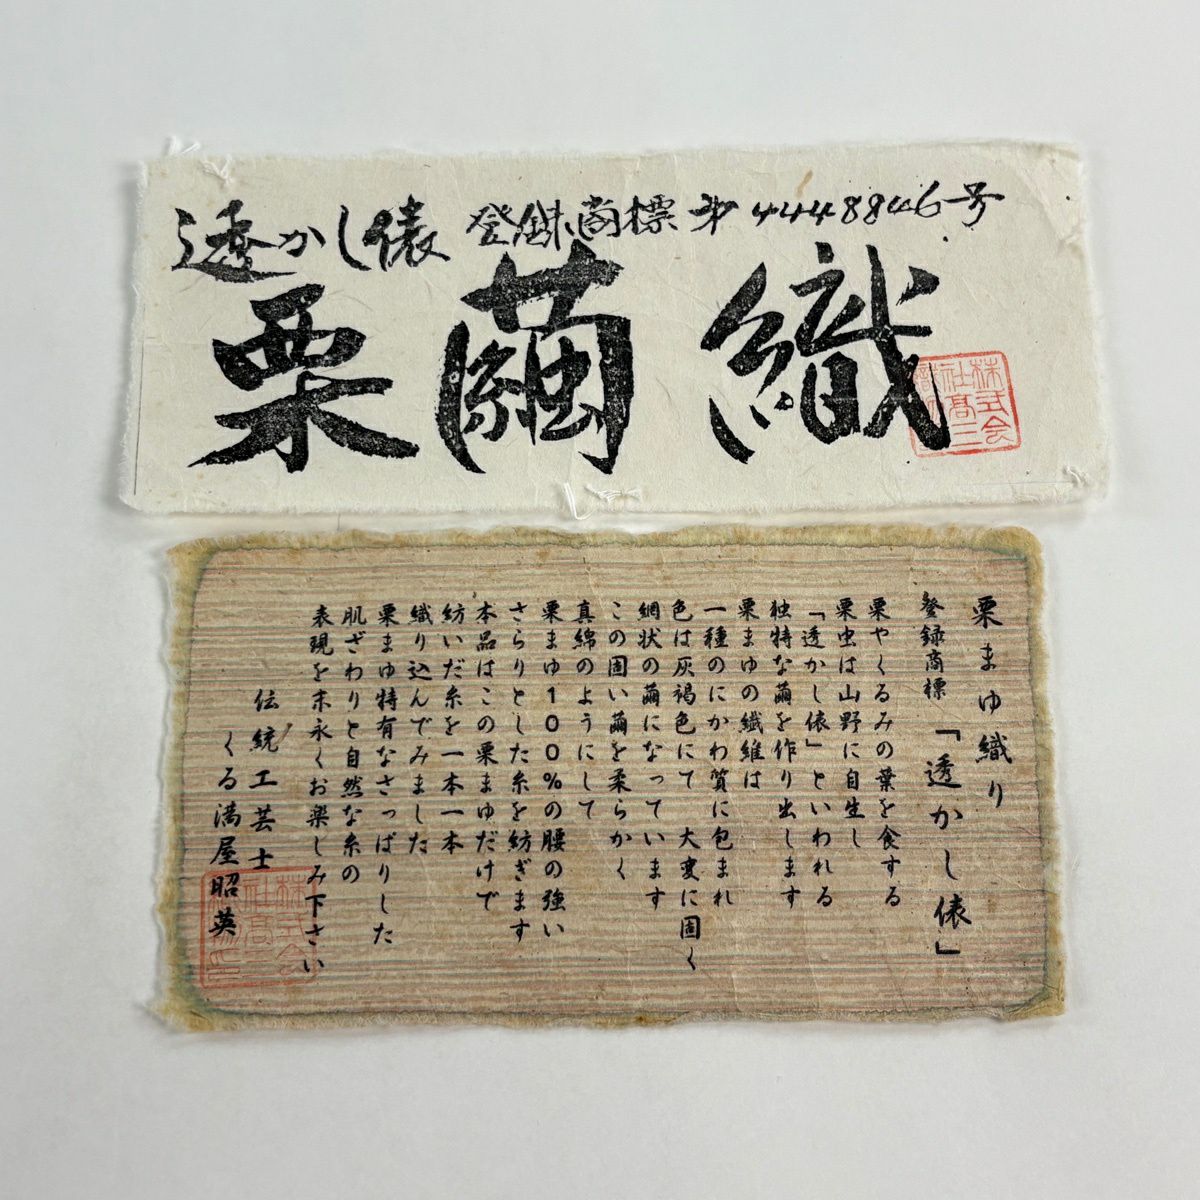 透かし俵 登録商標 第4448846号
栗繭織
株式会
社髙三
栗まゆ織り
登録商標「透かし俵」
栗やくるみの葉を食する
栗虫は山野に自生し
「透かし俵」といわれる
独特な繭を作り出します
栗まゆの繊維は
一種のにかわ質に包まれ
色は灰褐色にて 大変に固く
網状の繭になっています
この固い繭を柔らかく
真綿のようにして
栗まゆ100%の腰の強い
さらりとした糸を紡ぎます
本品はこの栗まゆだけで
紡いだ糸を一本一本
織り込んでみました
栗まゆ特有なさっぱりした
肌ざわりと自然な糸の
表現を末永くお楽しみ下さい
伝統工芸士
くる満屋昭英
株式会
社髙